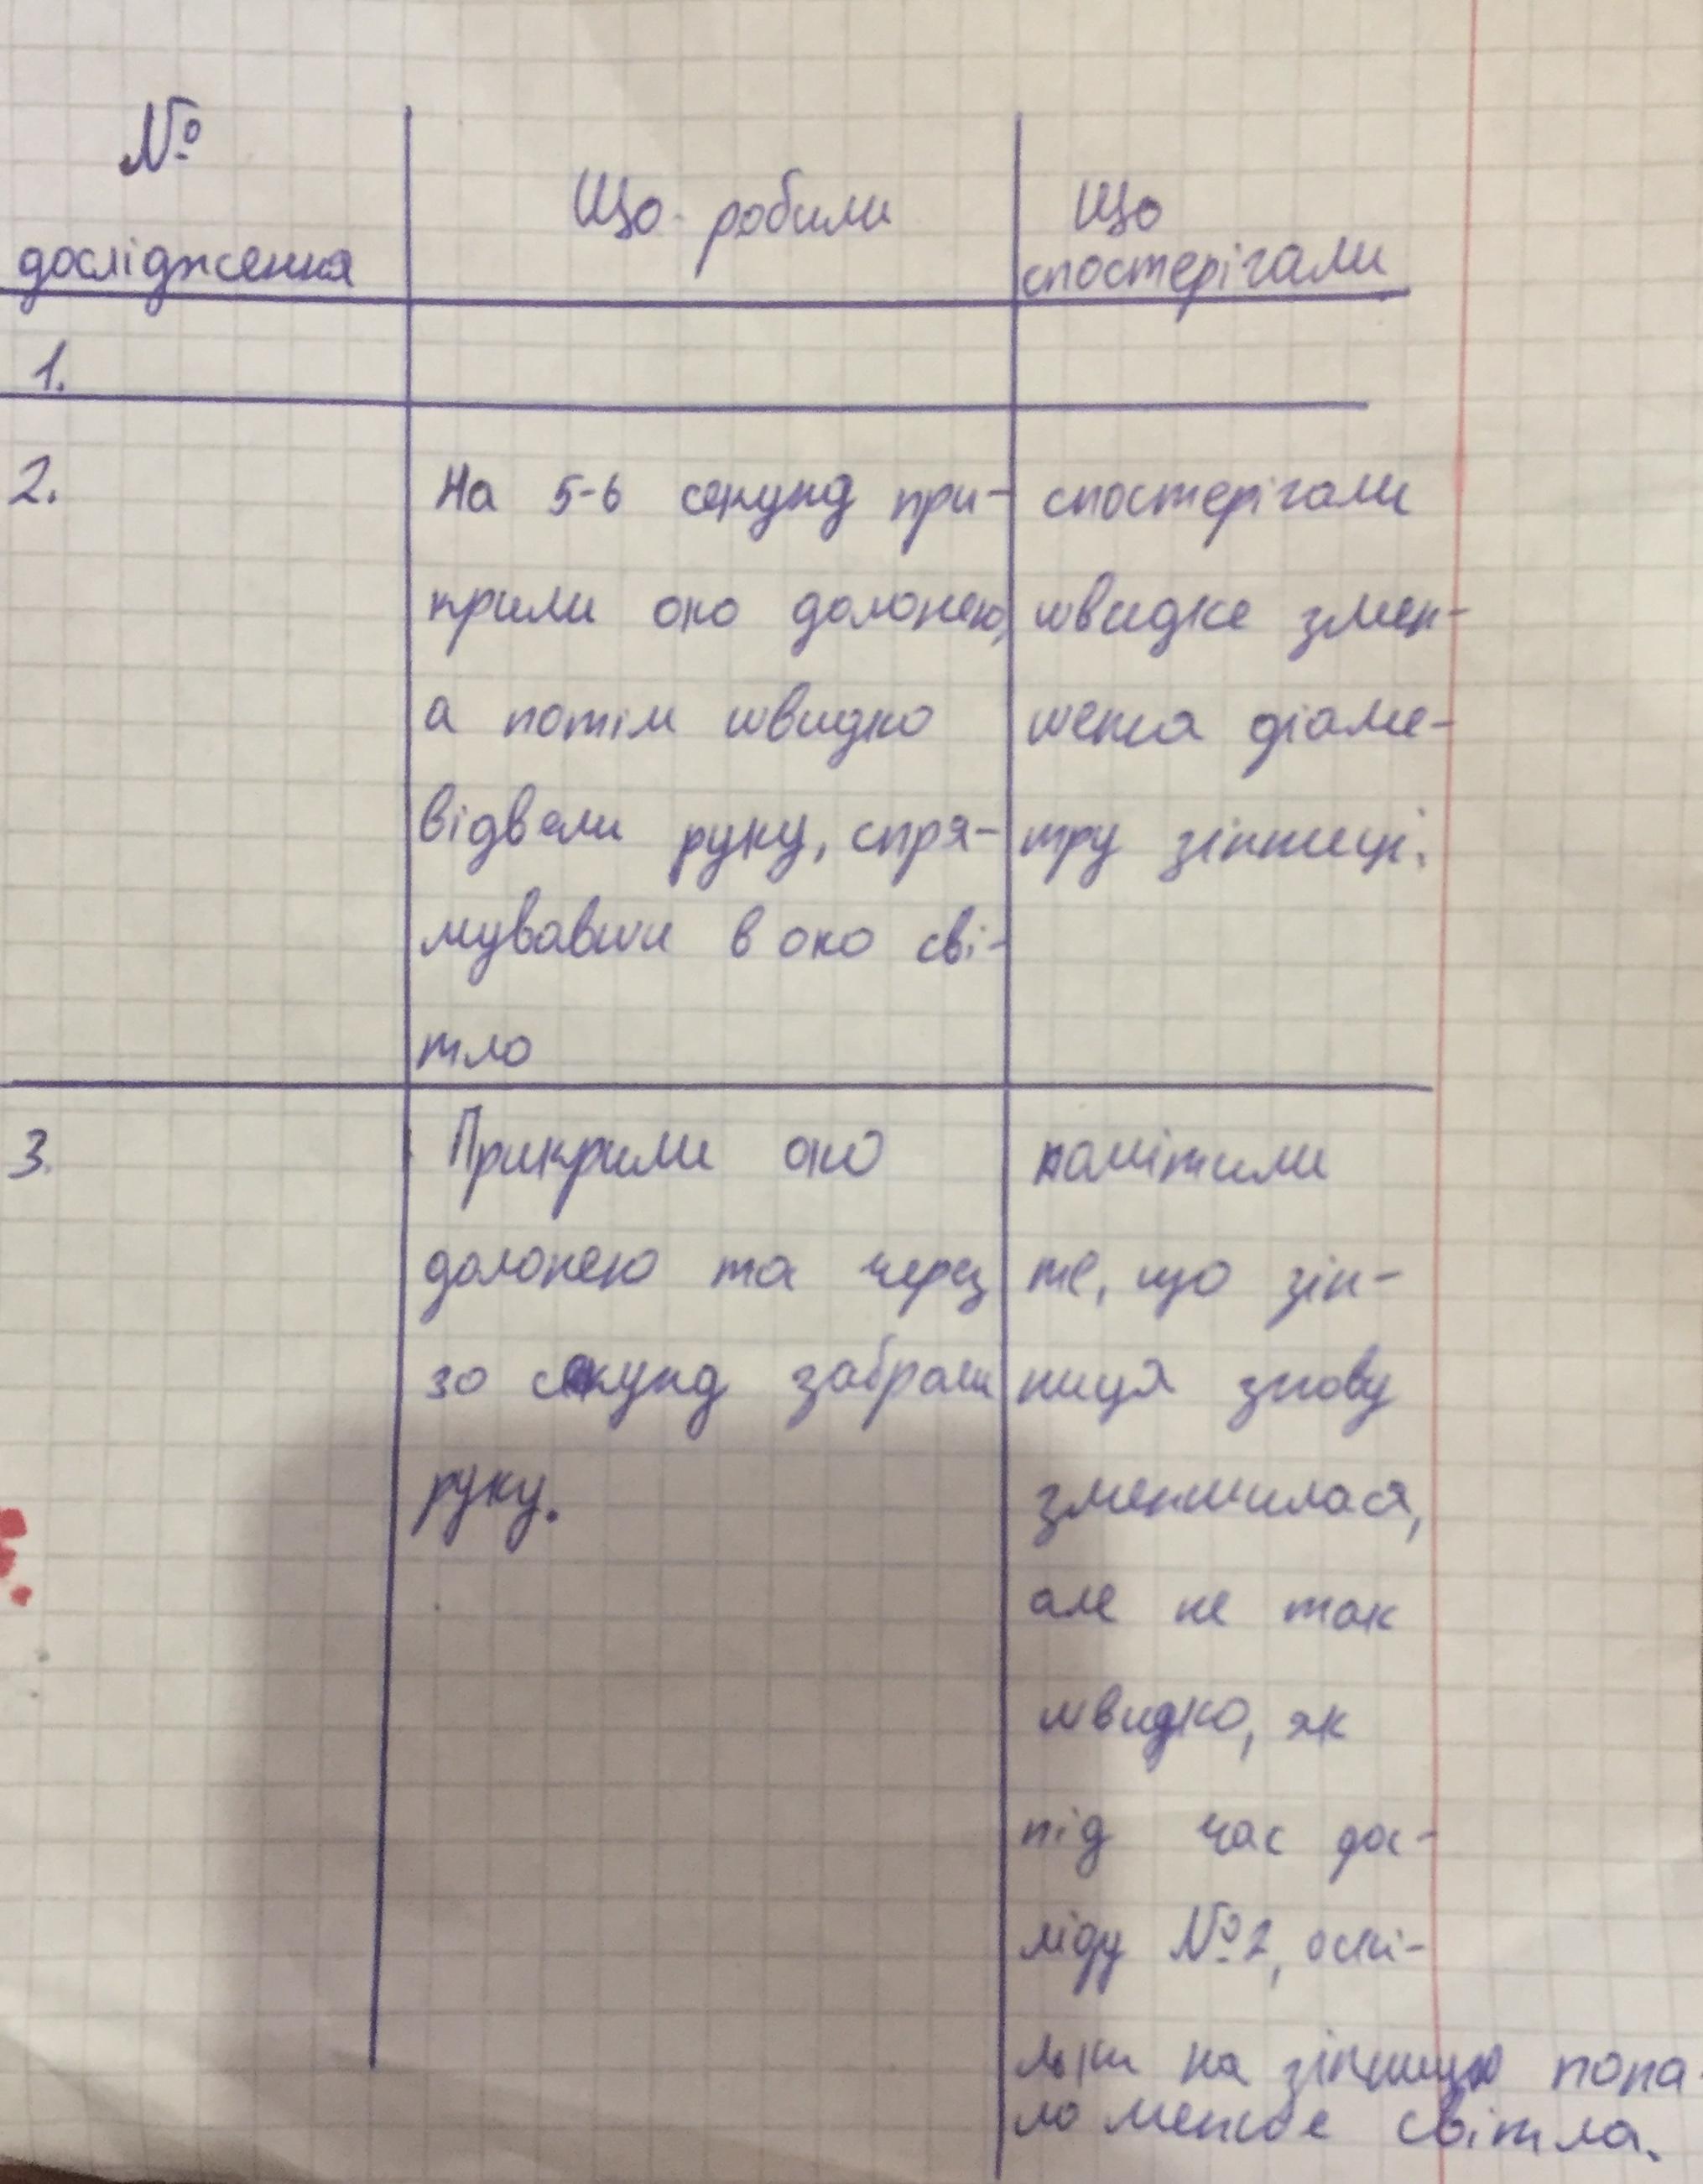 №
дослідження
Що робили
Що
спостерігали
1.
2.
На 5-6 секунд при-
крили око долонею,
а потім швидко
відвели руку, спря-
мувавши в око сві-
тло
спостерігали
швидке змен-
шення діаме-
тру зіниці.
3.
Прикрили око
долонею та через
30 секунд забрали
руку.
помітили
те, що зін-
ниця знову
зменшилася,
але не так
швидко, як
під час дос-
ліду №2, оскі-
льки на зіницю попа-
ло менше світла.